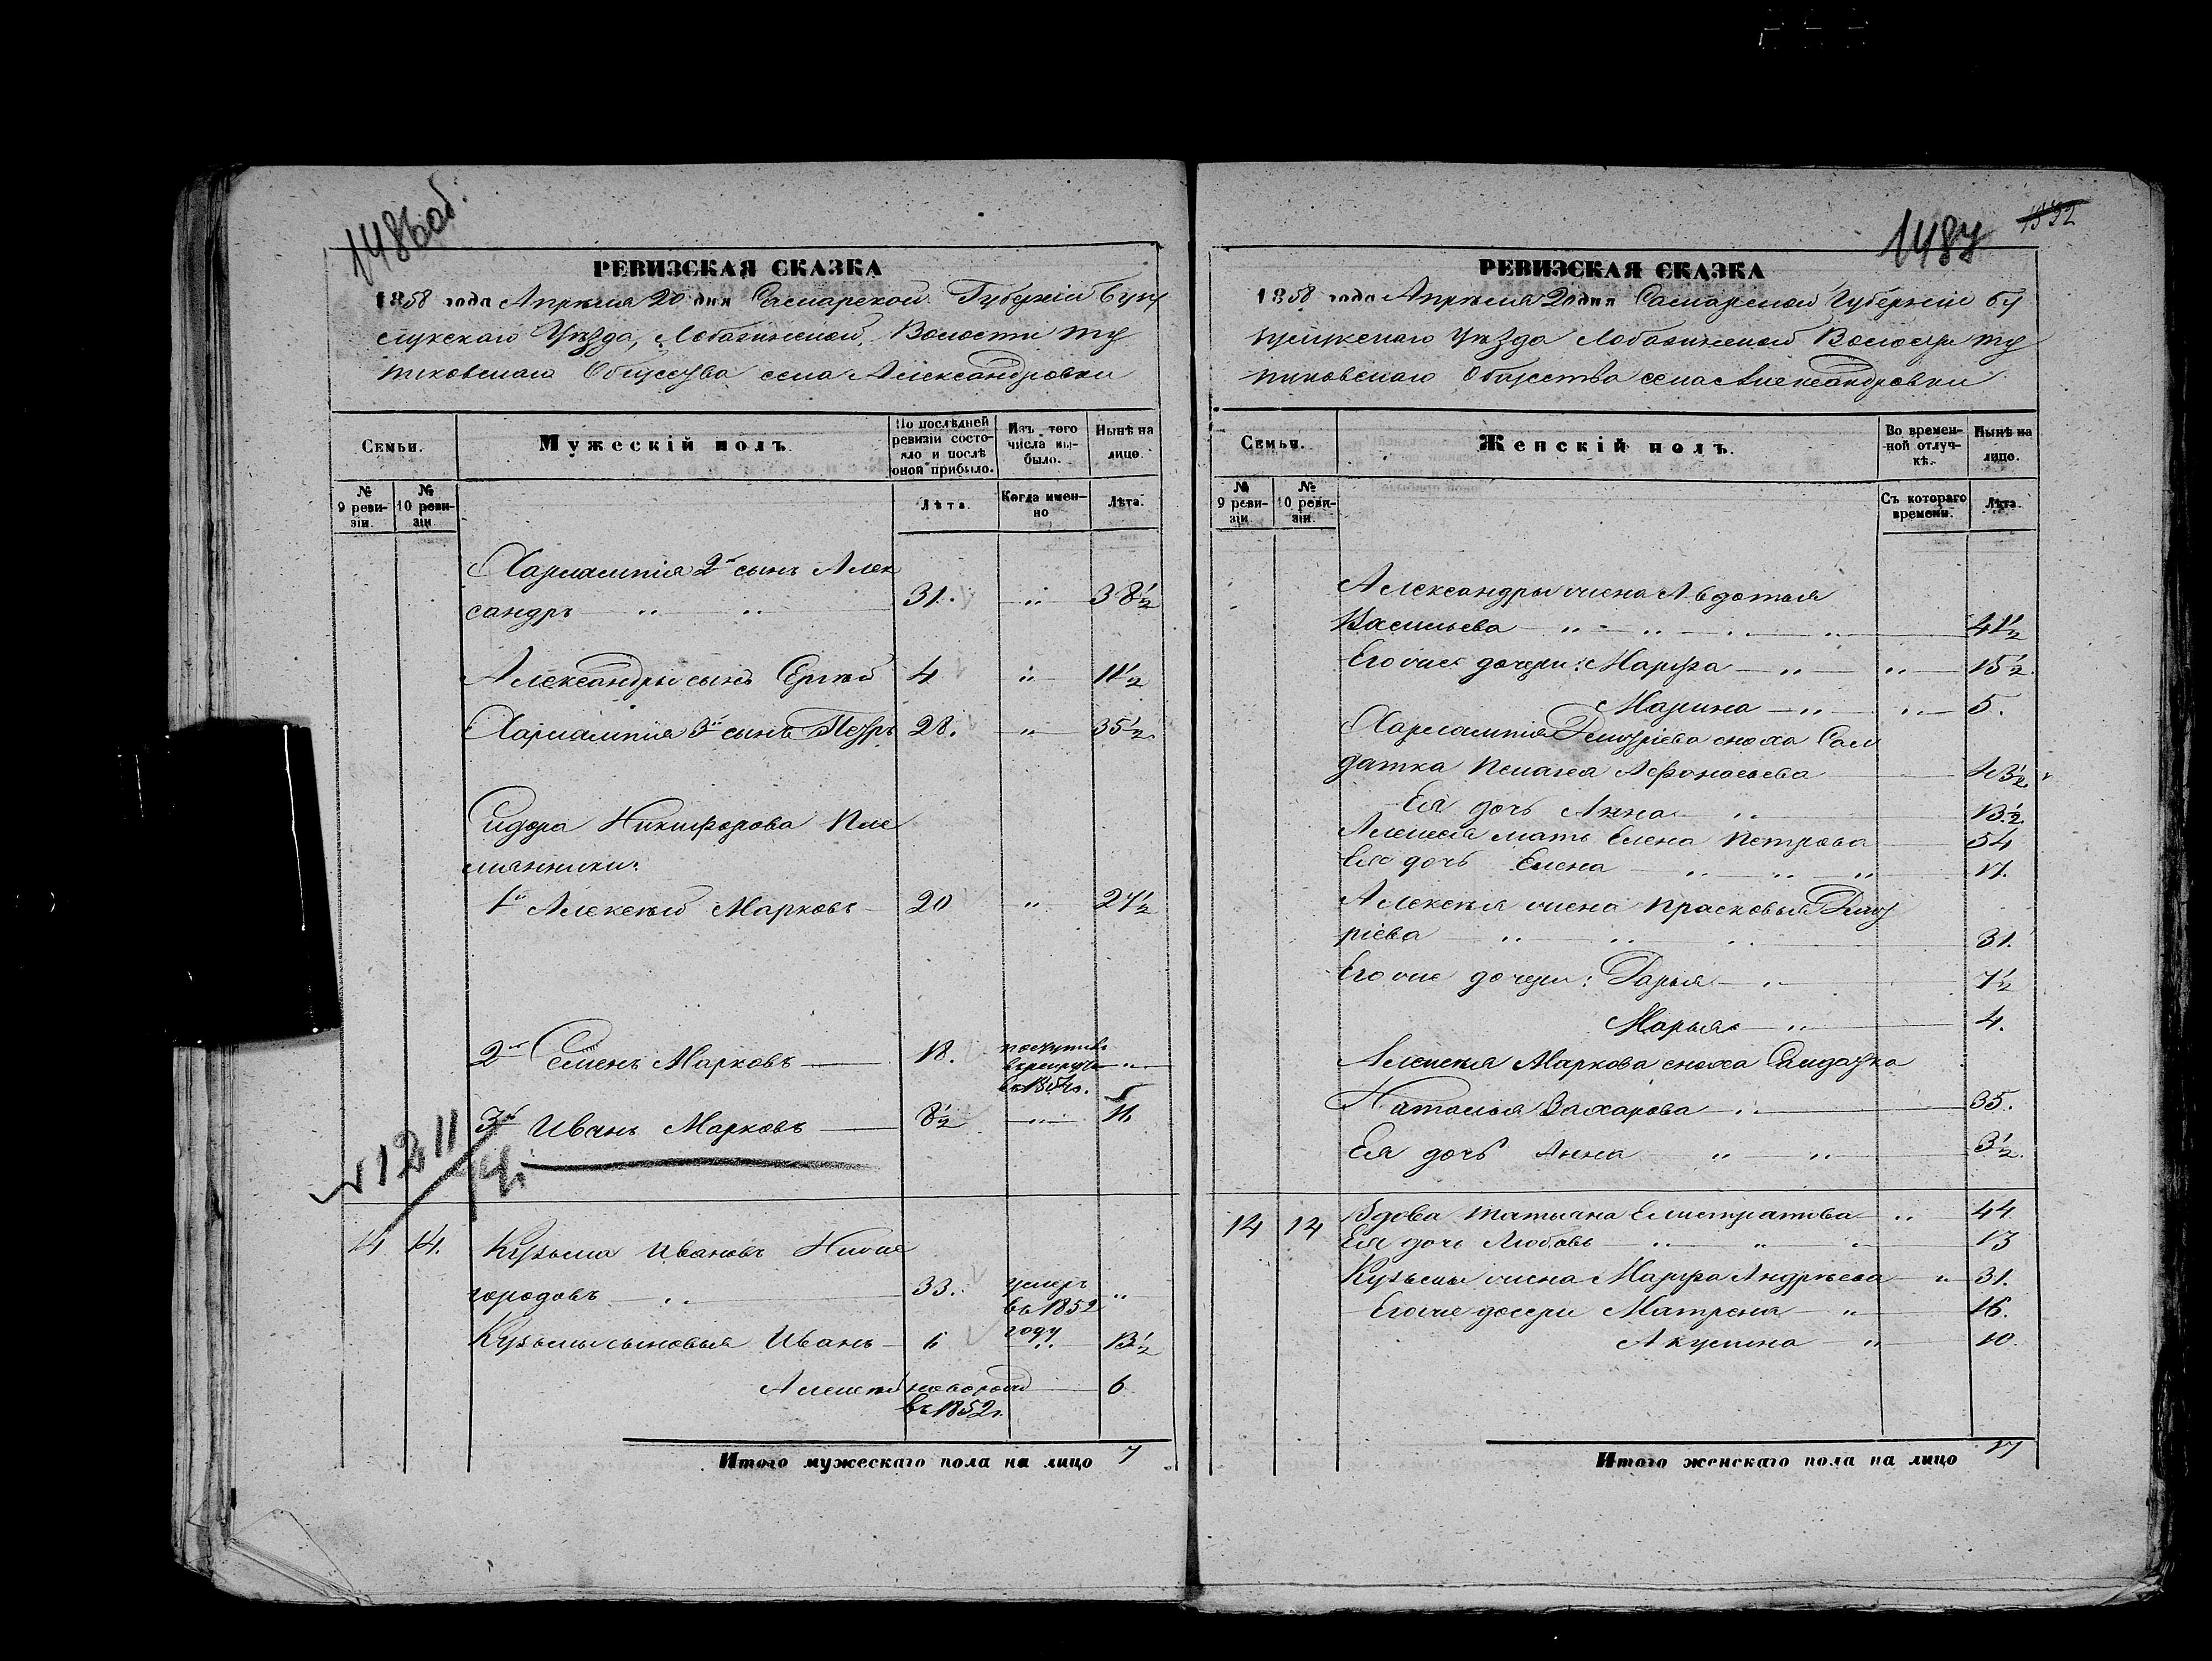 1486 об.
РЕВИЗСКАЯ СКАЗКА
1858 года Апрѣля 20 дня Самарской Губерніи Бузу
лукскаго Уѣзда, Лобазинской Волости
Общества села Александровки
Семьи.
Мужескій полъ.
По послѣдней ревизіи состояло и послѣ оной прибыло.
Изъ того числа выбыло.
Нынѣ на лицо.
№ 9 ревизіи.
№ 10 ревизіи.
Лѣта.
Когда именно
Лѣта.
Харлампія 2й сынъ Алек
сандръ 31. 38½
Александры сынъ Сергѣй 4 11½
Харлампія 3й сынъ Петръ 28. 35½
Сидора Никифорова Пле
мянники:
1й Алексѣй Марковъ 20 27½
2й Семенъ Марковъ 18. поступилъ
въ рекруты
3й Иванъ Марковъ 8½
14 14. Кузьма Ивановъ Ниже
городовъ 33. умеръ
въ 1852
году
Кузьмы сыновья Иванъ 6 13½
Алексѣй новорожд 6
въ 1852г.
Итого мужескаго пола на лицо 7
1487 1532
РЕВИЗСКАЯ СКАЗКА
1858 года Апрѣля 20 дня Самарской Губерніи Бу
зулукскаго Уѣзда Лобазинской Волости
Общества села Александровки
Семьи.
Женскій полъ.
Во временной отлучкѣ.
Нынѣ на лицо.
№ 9 ревизіи.
№ 10 ревизіи.
Съ котораго времени.
Лѣта.
Александры жена Авдотья
Васильева 41½
Его же дочери: Марфа 15½.
Марина 5.
Харлампія Дмитріева сноха Сол
датка Пелагея Афонасьева 43½.
Ея дочь Анна 13½.
Алексѣя мать Елена Петрова 54
Ея дочь Елена 17.
Алексѣя жена Прасковья Дмит
ріева 31.
Его же дочери: Дарья 7½
Марья 4.
Алексѣя Маркова сноха Солдатка
Наталья Захарова 35.
Ея дочь Анна 3½.
14 14 Вдова Татьяна Елистратова 44
Ея дочь Любовь 13
Кузьмы жена Марфа Андреева 31.
Его же дочери Матрена 16.
Акулина 10.
Итого женскаго пола на лицо 17